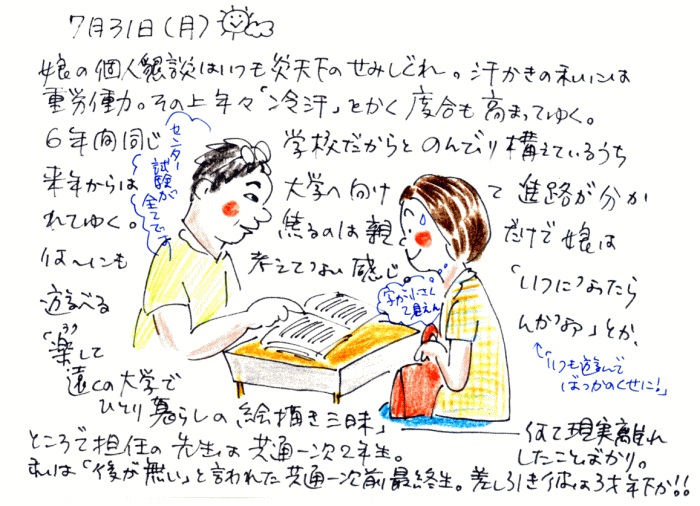 7月31日(月)
娘の個人懇談はいつも炎天下のせみしぐれ。汗かきの私には
重労働力。その上年々「冷汗」とかく度合も高まってゆく。
6年間同じ学校だからとのんびり構えているうち
来年からは大学へ向けて進路が分か
れてゆく。焦るのは親だけで娘は
な〜んにも考えてない感じ
「いつになったら
遊べる
んかなあ」とか、
「楽して
遠くの大学で
ひとり暮らしの絵描き三昧」
何て現実離れ
したことばかり。
ところで担任の先生は共通一次2年生。
私は「後が無い」と言われた共通一次前最終生。差し引き彼は3才年下か!!
センター
試験が
全てでは
字が小さくて
見えん
「いつも遊んで
ばっかのくせに!」